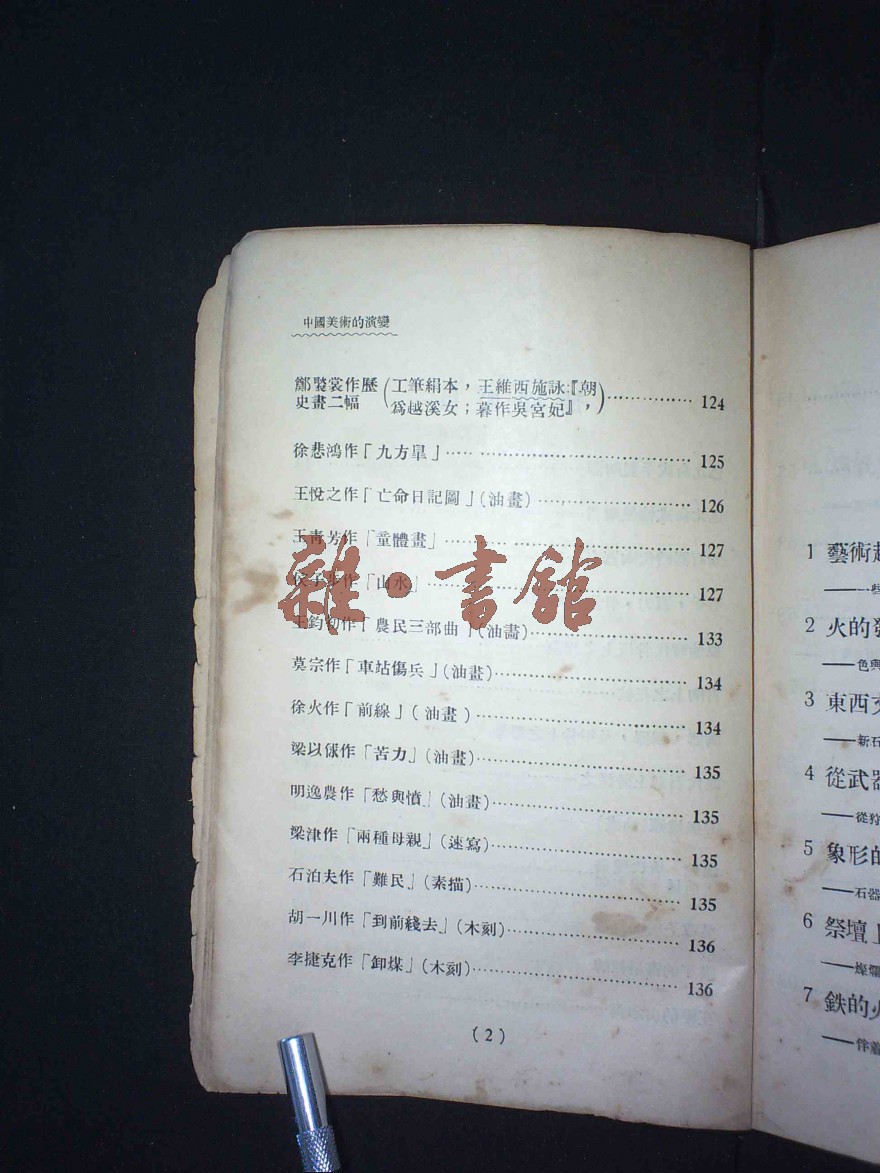 中國美術的演變
鄭褧裳作歷史畫二幅(工筆絹本,王維西施詠:『朝爲越溪女;暮作吳宮妃』,)……………124
徐悲鴻作「九方皐」…… ……………………125
王悅之作「亡命日記圖」(油畫)………………126
王靑芳作「童體畫」……………………………127
作「山水」……………………………127
王鈞初作「農民三部曲」(油畵)………………133
莫宗作「車站傷兵」(油畫)……………………134
徐火作「前線」( 油畫 )………………………134
梁以俅作「苦力」(油畫)………………………135
明逸農作「愁與憤」(油畫)……………………135
梁津作「兩種母親」(速寫)……………………135
石泊夫作「難民」(素描)………………………135
胡一川作「到前綫去」(木刻)…………………136
李捷克作「卸煤」(木刻)………………………136
(2)
雜·書館
1 藝術起
2 火的發
——色與
3 東西交
——新石
4 從武器
——從狩
5 象形的
——石器
6 祭壇上
——燦爛
7 鉄的火
——伴着